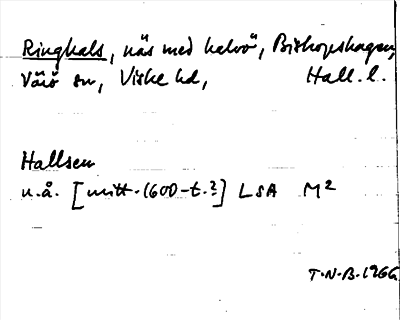 Ringhals, näs med halvö, Biskopshagen,
Värö sn, Viske hd, Hall. l.
Hallsen
u.å. [mitt. 1600-t.?] LSA M2
T.N.B. 1966